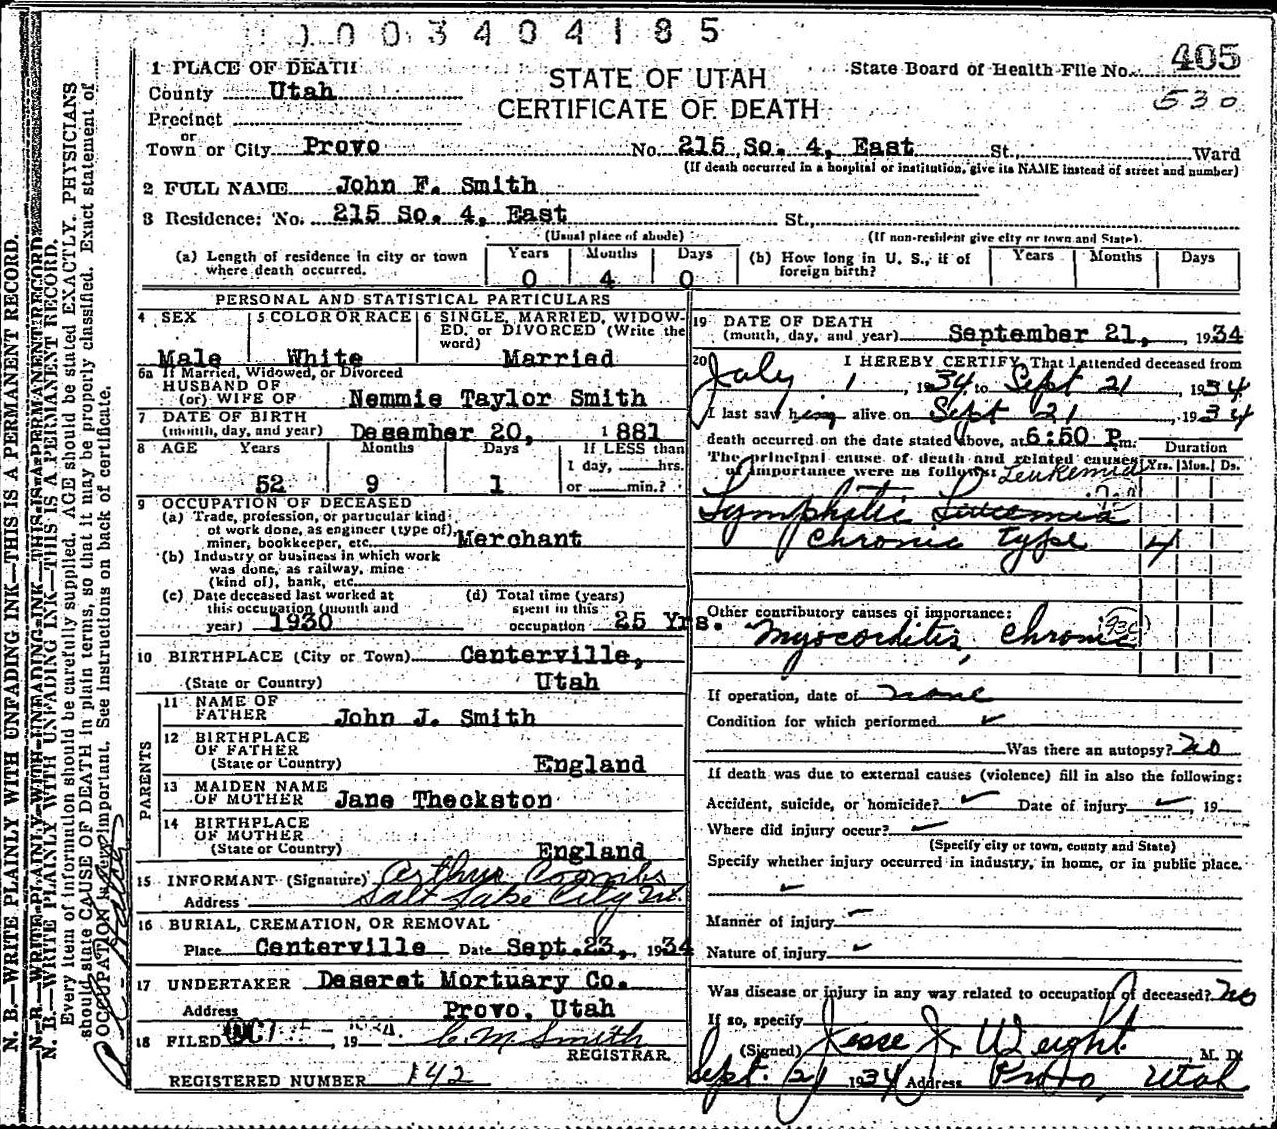 0003404185
405
530
1 PLACE OF DEATH
STATE OF UTAH
CERTIFICATE OF DEATH
State Board of Health File No.
County Utah
Precinct
or
Town or City Provo No. 215 So. 4, East St., Ward
(If death occurred in a hospital or institution, give its NAME instead of street and number)
2 FULL NAME John F. Smith
3 Residence: No. 215 So. 4, East St.,
(Usual place of abode) (If non-resident give city or town and State).
(a) Length of residence in city or town where death occurred. Years 0 Months 4 Days 0
(b) How long in U. S., if of foreign birth? Years Months Days
PERSONAL AND STATISTICAL PARTICULARS
4 SEX Male
5 COLOR OR RACE White
6 SINGLE, MARRIED, WIDOWED, or DIVORCED (Write the word) Married
6a If Married, Widowed, or Divorced
HUSBAND OF
(or) WIFE OF Nemmie Taylor Smith
7 DATE OF BIRTH
(month, day, and year) Desember 20, 1881
8 AGE Years 52 Months 9 Days 1 If LESS than 1 day, hrs. or min.?
9 OCCUPATION OF DECEASED
(a) Trade, profession, or particular kind
of work done, as engineer (type of),
miner, bookkeeper, etc. Merchant
(b) Industry or business in which work
was done, as railway, mine
(kind of), bank, etc.
(c) Date deceased last worked at
this occupation (month and
year) 1930
(d) Total time (years)
spent in this
occupation 25 Yrs.
10 BIRTHPLACE (City or Town) Centerville,
(State or Country) Utah
PARENTS
11 NAME OF
FATHER John J. Smith
12 BIRTHPLACE
OF FATHER
(State or Country) England
13 MAIDEN NAME
OF MOTHER Jane Theckston
14 BIRTHPLACE
OF MOTHER
(State or Country) England
15 INFORMANT (Signature) Arthur Coombs
Address Salt Lake City Ut.
16 BURIAL, CREMATION, OR REMOVAL
Place Centerville Date Sept.23, 1934
17 UNDERTAKER Deseret Mortuary Co.
Address Provo, Utah
18 FILED OCT 1934, 19 C. M. Smith
REGISTRAR.
REGISTERED NUMBER 142
19 DATE OF DEATH
(month, day, and year) September 21, 1934
20 I HEREBY CERTIFY, That I attended deceased from
July 1, 1934 to Sept 21 1934
I last saw him alive on Sept 21, 1934
death occurred on the date stated above, at 6:50 P.m.
The principal cause of death and related causes
of importance were as follows: Leukemia
Duration
Yrs. Mos. Ds.
Lymphatic Leucemia
chronic type 4
Other contributory causes of importance:
Myocorditis, chronic
93c
If operation, date of none
Condition for which performed ✓
Was there an autopsy? no
If death was due to external causes (violence) fill in also the following:
Accident, suicide, or homicide? ✓ Date of injury ✓, 19
Where did injury occur?
(Specify city or town, county and State)
Specify whether injury occurred in industry, in home, or in public place.
✓
Manner of injury
Nature of injury ✓
Was disease or injury in any way related to occupation of deceased? no
If so, specify
(Signed) Jesse J. Weight, M. D.
Sept. 21 1934 Address Provo, Utah
N. B.—WRITE PLAINLY WITH UNFADING INK—THIS IS A PERMANENT RECORD.
N. B.—WRITE PLAINLY WITH UNFADING INK—THIS IS A PERMANENT RECORD.
N. B.—WRITE PLAINLY WITH UNFADING INK—THIS IS A PERMANENT RECORD.
Every item of information should be carefully supplied. AGE should be stated EXACTLY. PHYSICIANS
should state CAUSE OF DEATH in plain terms, so that it may be properly classified. Exact statement of
OCCUPATION is very important. See instructions on back of certificate.